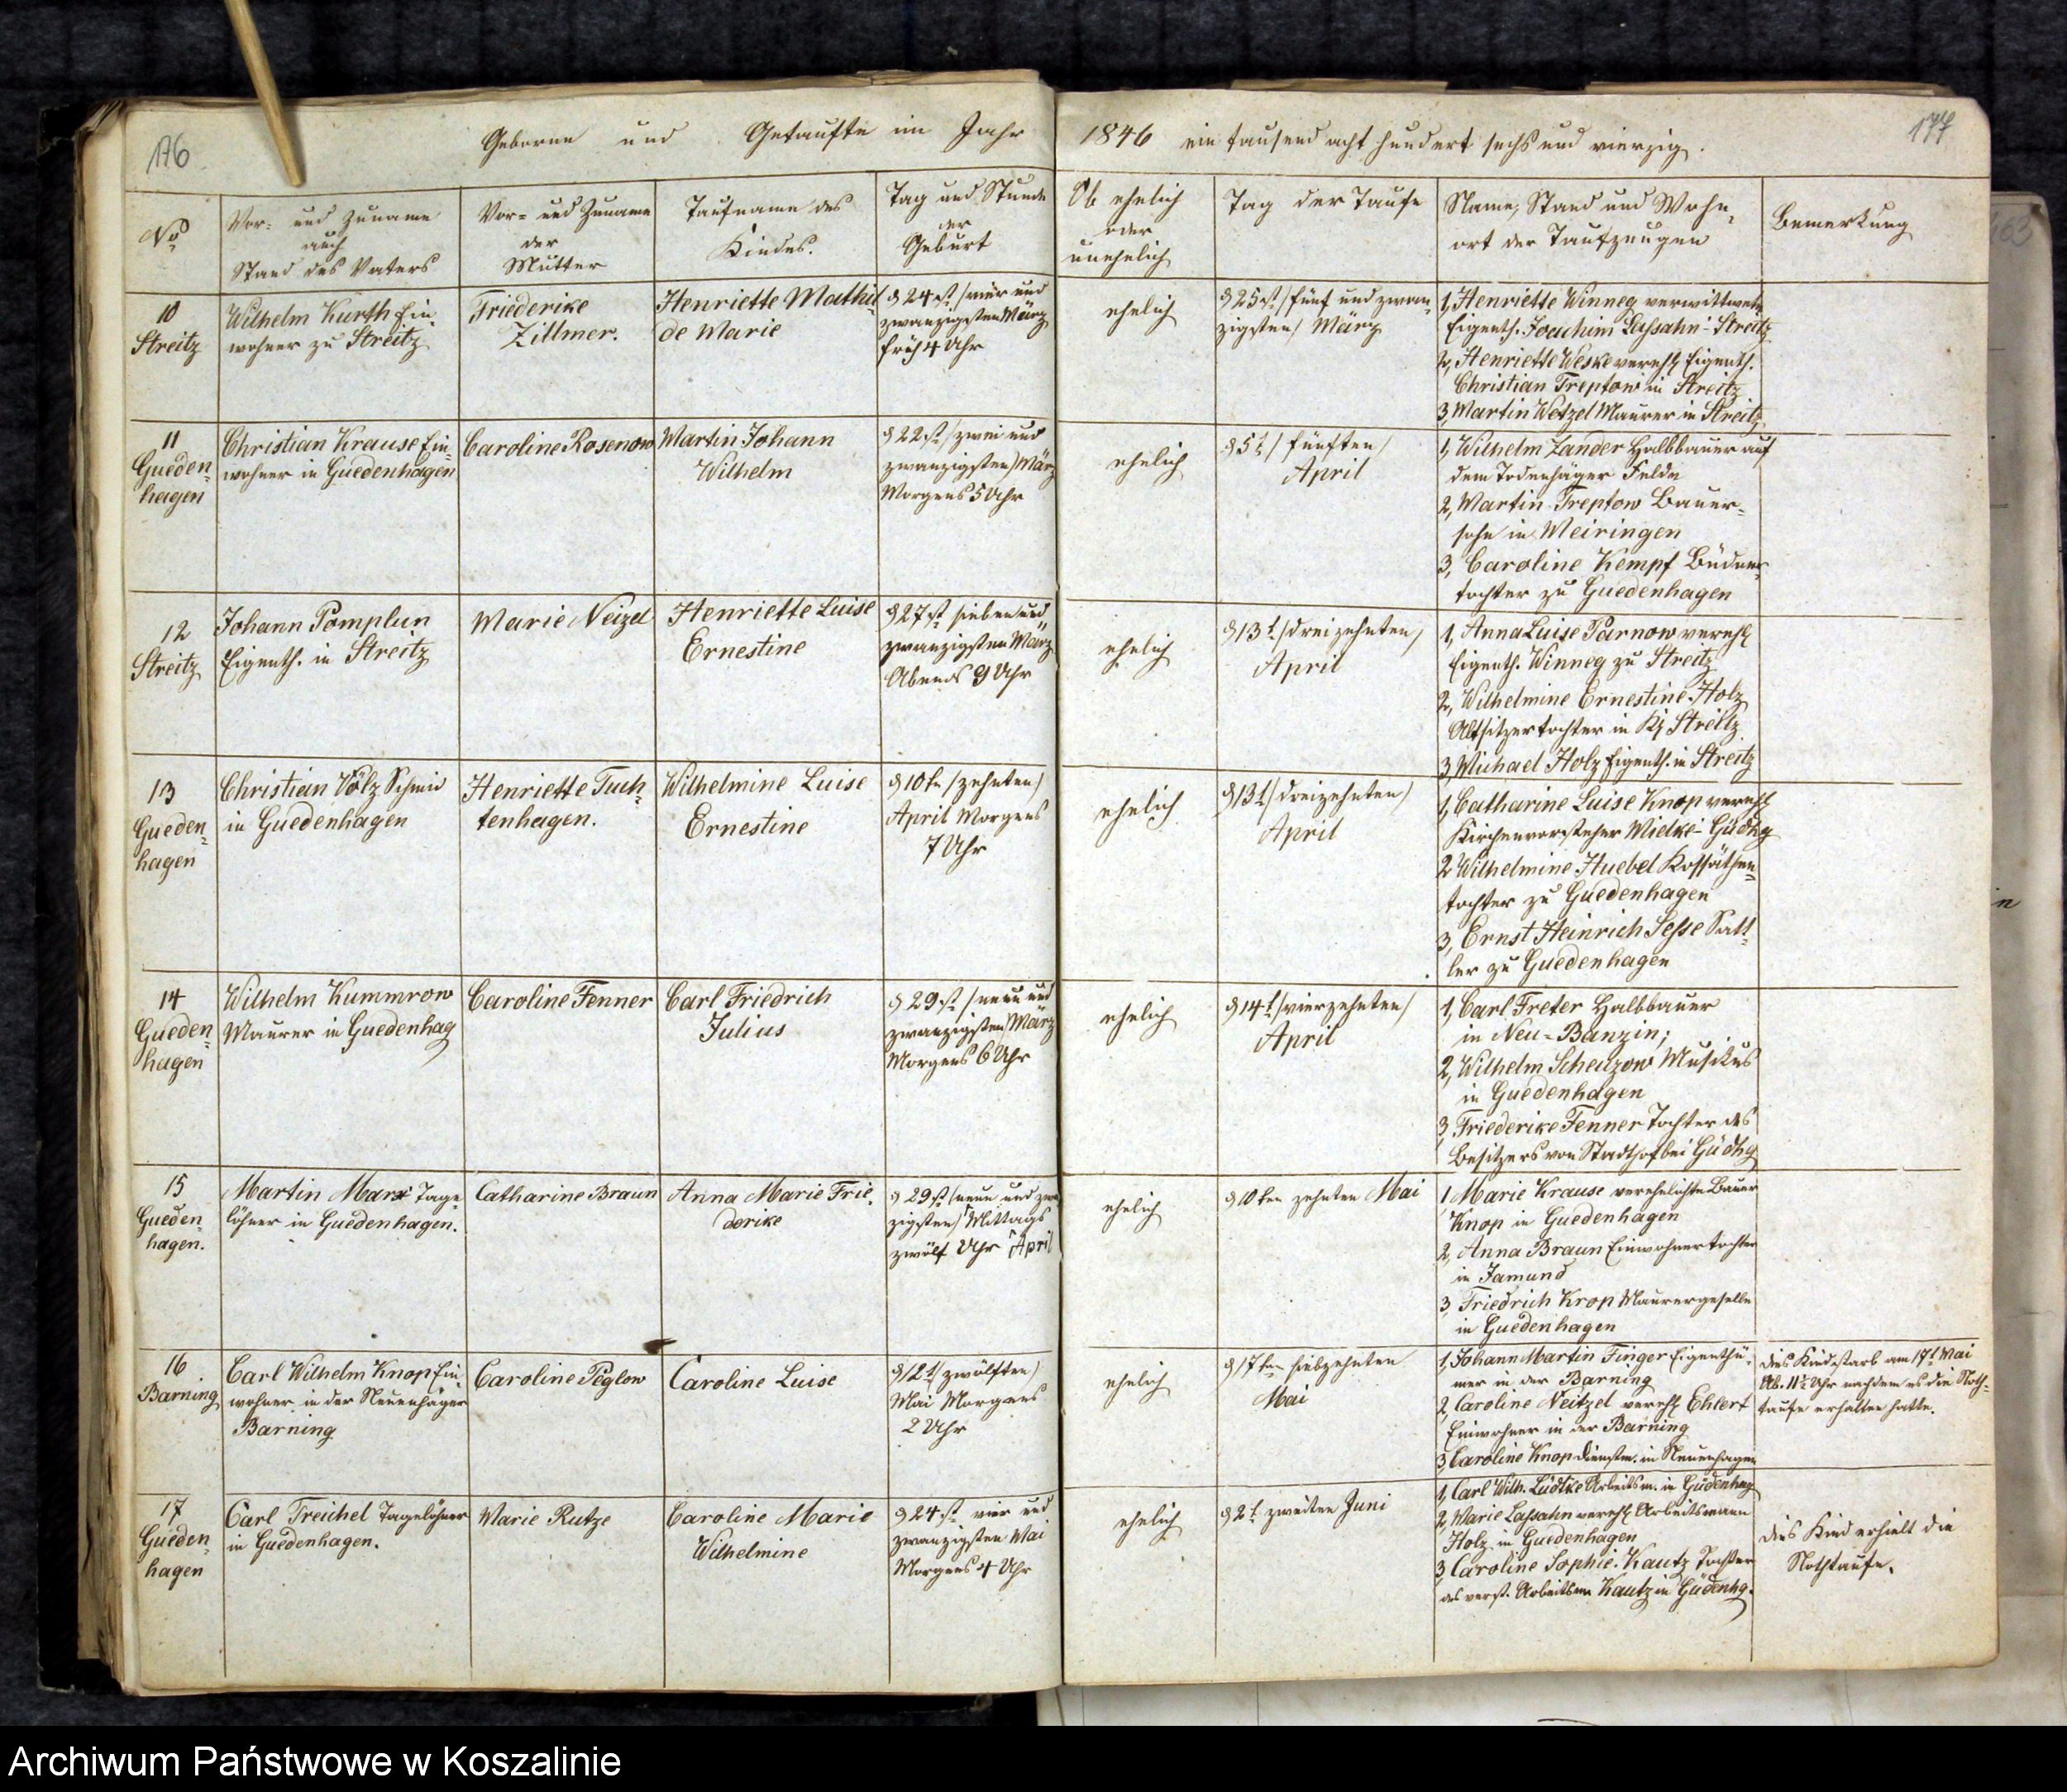 176
Geborne und Getaufte im Jahr
1846 ein tausend acht hundert sechs und vierzig.
177
No
Vor- und Zuname
auch
Stand des Vaters
Vor- und Zuname
der
Mutter
Taufname des
Kindes.
Tag und Stunde
der
Geburt
Ob ehelich
oder
unehelich
Tag der Taufe
Name, Stand und Wohn-
ort der Taufzeugen
Bemerkung
10
Streitz
Wilhelm Kurth Ein-
wohner zu Streitz
Friederike
Zillmer.
Henriette Mathil-
de Marie
d 24st /vier und
zwanzigsten März
früh 4 Uhr
ehelich
d 25st /fünf und zwan-
zigsten/ März
1, Henriette Winneg verwittwete
Eigenth. Joachim Lassahn - Streitz
2, Henriette Weske verehl Eigenth.
Christian Treptow in Streitz
3, Martin Wetzel Maurer in Streitz
11
Gueden-
hagen
Christian Krause Ein-
wohner in Guedenhagen
Caroline Rosenow
Martin Johann
Wilhelm
d 22st /zwei und
zwanzigsten/ März
Morgens 5 Uhr
ehelich
d 5t / fünften/
April
1, Wilhelm Zander Halbbauer auf
dem Todenhäger Felde
2, Martin Treptow Bauer-
sohn in Meiringen
3, Caroline Kempf Büdner-
tochter zu Guedenhagen
12
Streitz
Johann Pomplun
Eigenth. in Streitz
Marie Neizel
Henriette Luise
Ernestine
d 27st sieben und
zwanzigsten März
Abends 9 Uhr
ehelich
d 13t /dreizehnten/
April
1, Anna Luise Parnow verehl
Eigenth. Winneg zu Streitz
2, Wilhelmine Ernestine Holz
Altsitzertochter in Kl Streitz
3, Michael Holz Eigenth. in Streitz
13
Gueden-
hagen
Christian Völz Schmid
in Guedenhagen
Henriette Tuch-
tenhagen.
Wilhelmine Luise
Ernestine
d 10tn /zehnten/
April Morgens
7 Uhr
ehelich
d 13t /dreizehnten/
April
1, Catharine Luise Knop verehl
Kirchenvorsteher Mielke - Güdhg
2 Wilhelmine Huebel Kossäthen-
tochter zu Guedenhagen
3, Ernst Heinrich Sesse Satt-
ler zu Guedenhagen
14
Gueden-
hagen
Wilhelm Kummrow
Maurer in Guedenhag
Caroline Fenner
Carl Friedrich
Julius
d 29st /neun und
zwanzigsten/ März
Morgens 6 Uhr
ehelich
d 14t /vierzehnten/
April
1, Carl Freter Halbbauer
in Neu-Banzin;
2, Wilhelm Scheuzow Musikus
in Guedenhagen
3, Friederike Fenner Tochter des
Besitzers von Stadthof bei Güdhg
15
Gueden-
hagen.
Martin Marx Tage-
löhner in Guedenhagen.
Catharine Braun
Anna Marie Frie-
derike
d 29st /neun und zwan
zigsten/ Mittags
zwölf Uhr April
ehelich
d 10ten zehnten Mai
1 Marie Krause verehelichte Bauer
Knop in Guedenhagen
2, Anna Braun Einwohnertochter
in Jamund
3, Friedrich Krop Maurergeselle
in Guedenhagen
16
Barning
Carl Wilhelm Knop Ein-
wohner in der Neuenhäger
Barning
Caroline Peglow
Caroline Luise
d 12t /zwölften/
Mai Morgens
2 Uhr
ehelich
d 17ten siebzehnten
Mai
1, Johann Martin Finger Eigenthü-
mer in der Barning
2, Caroline Neitzel verehl Ehlert
Einwohner in der Barning
3, Caroline Knop Dienstm. in Neuenhagen
Dies Kind starb am 17t Mai
Ab. 11½ Uhr nachdem es die Noth-
taufe erhalten hatte.
17
Gueden-
hagen
Carl Treichel Tagelöhner
in Guedenhagen.
Marie Rutze
Caroline Marie
Wilhelmine
d 24st vier und
zwanzigsten Mai
Morgens 4 Uhr
ehelich
d 2t zweiten Juni
1, Carl Wilh. Lüdtke Arbeitsm. in Güdenhag
2, Marie Lassahn verehl Arbeitsmann
Holz in Guedenhagen
3 Caroline Sophie Kautz Tochter
des verst. Arbeitsm Kautz in Güdenhg.
Dies Kind erhielt die
Nothtaufe.
Archiwum Państwowe w Koszalinie